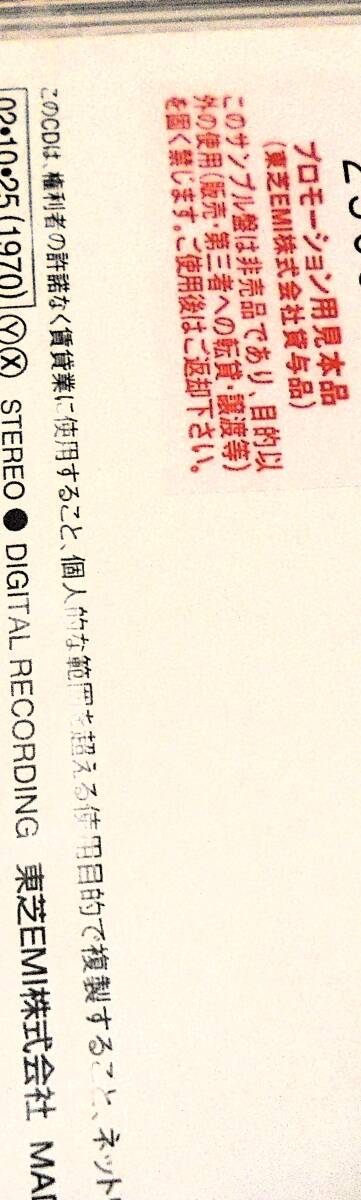 プロモーション用見本品
(東芝EMI株式会社貸与品)
このサンプル盤は非売品であり、目的以
外の使用(販売・第三者への転貸・譲渡等)
を固く禁じます。ご使用後はご返却下さい。
このCDは、権利者の許諾なく賃貸業に使用すること、個人的な範囲を超える使用目的で複製すること、ネット
02•10•25(1970)ⓎⓍ STEREO ● DIGITAL RECORDING 東芝EMI株式会社 MAD